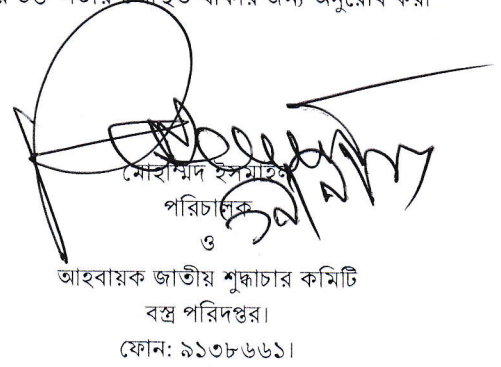 থাকার জন্য অনুরোধ করা
মোহাম্মদ ইসমাইল
পরিচালক
ও
আহবায়ক জাতীয় শুদ্ধাচার কমিটি
বস্ত্র পরিদপ্তর।
ফোন: ৯১৩৮৬৬১।